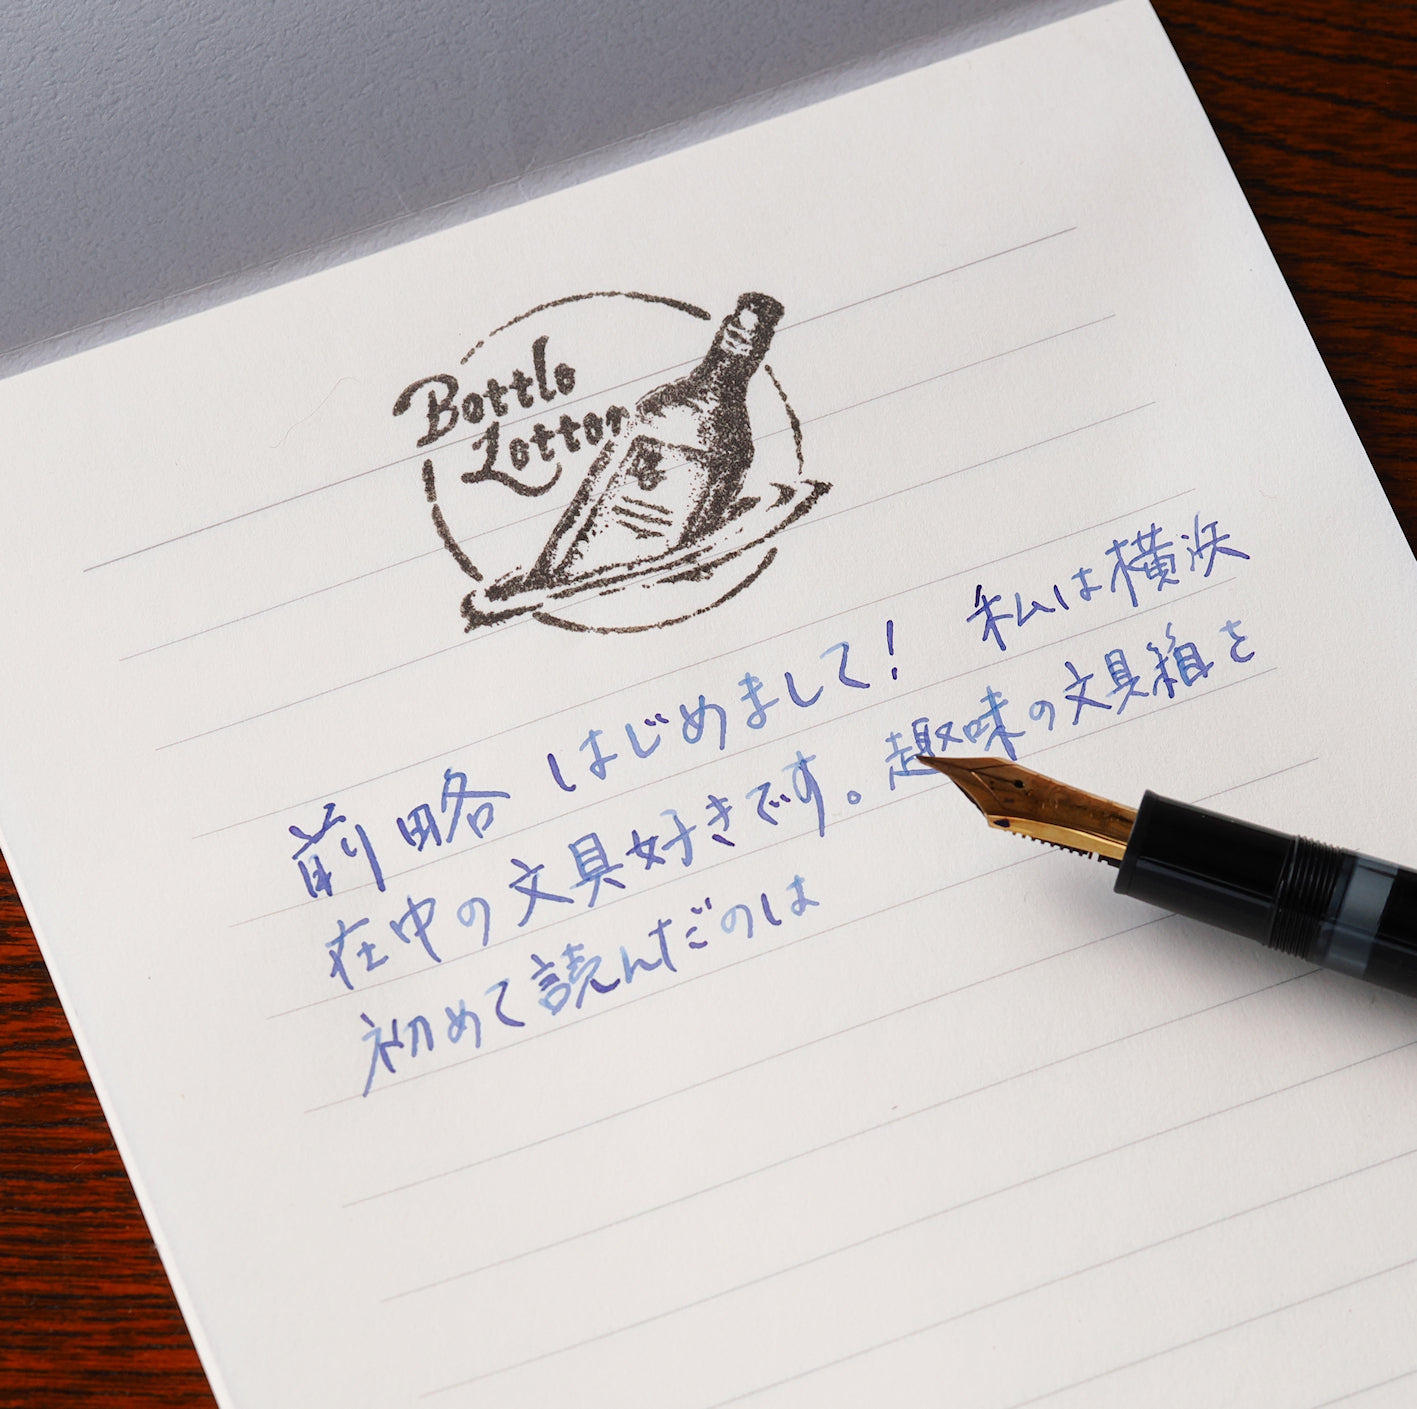 Bottle
Letter
前略 はじめまして！ 私は横浜
在中の文具好きです。趣味の文具箱を
初めて読んだのは